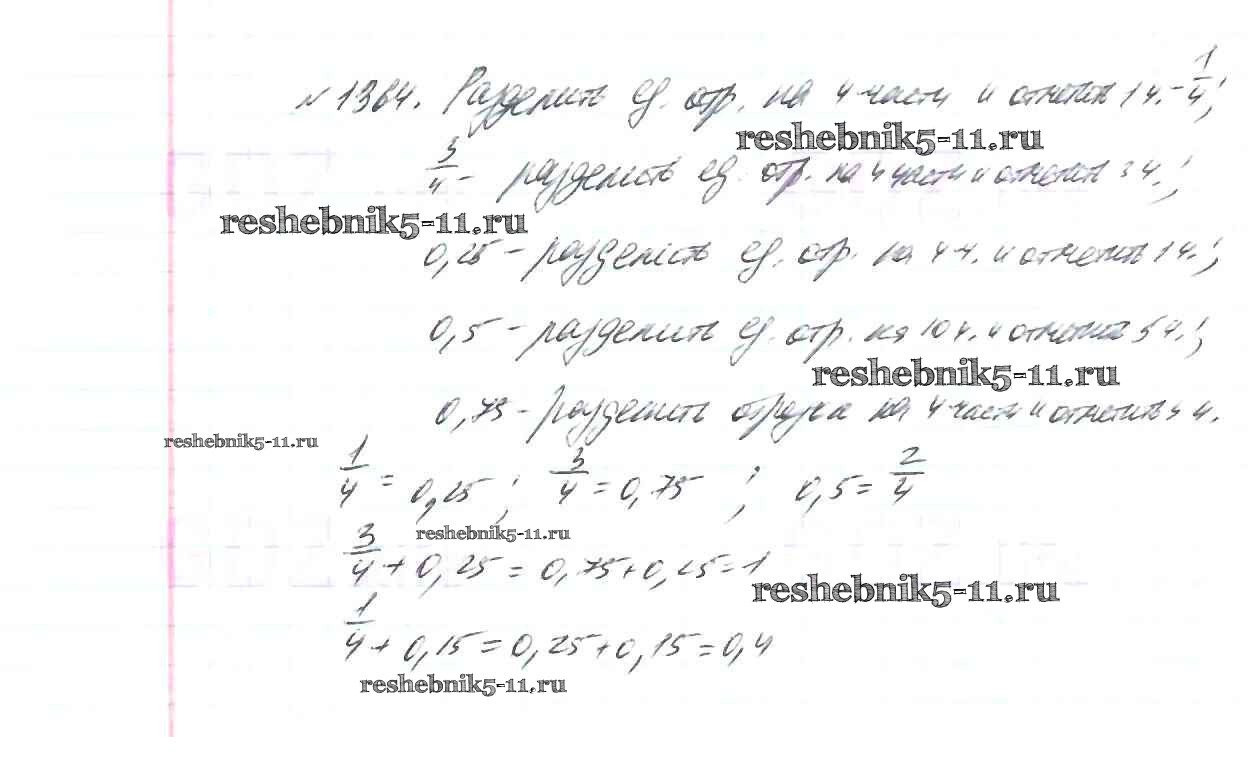 № 1364. Разделить ед. отр. на 4 части и отметить 1 ч. - 1/4;
reshebnik5-11.ru
3/4 - разделить ед. отр. на 4 части и отметить 3 ч.;
reshebnik5-11.ru
0,25 - разделить ед. отр. на 4 ч. и отметить 1 ч.;
0,5 - разделить ед. отр. на 10 ч. и отметить 5 ч.;
reshebnik5-11.ru
0,75 - разделить отрезка на 4 части и отметить ч.
reshebnik5-11.ru
1/4 = 0,25 ; 3/4 = 0,75 ; 0,5 = 2/4
reshebnik5-11.ru
3/4 + 0,25 = 0,75 + 0,25 = 1
reshebnik5-11.ru
1/4 + 0,15 = 0,25 + 0,15 = 0,4
reshebnik5-11.ru